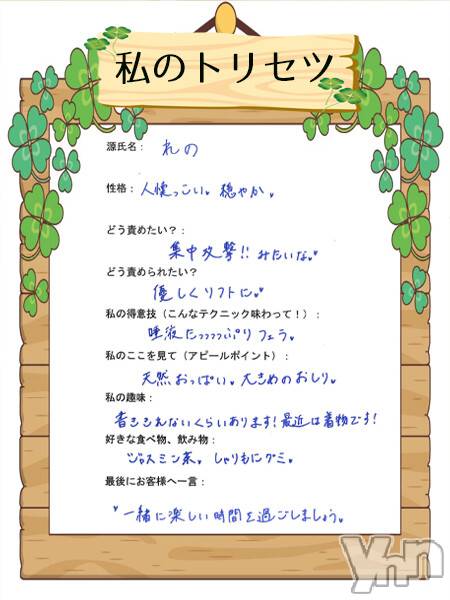 私のトリセツ
源氏名: れの
性格: 人懐っこい。穏やか。
どう責めたい?:
集中攻撃!!みたいな。♥
どう責められたい?
優しくソフトに。♥
私の得意技(こんなテクニック味わって!):
唾液たっっっっぷりフェラ。
私のここを見て(アピールポイント):
天然おっぱい。大きめのおしり。
私の趣味:
書ききれないくらいあります!最近は着物です!
好きな食べ物、飲み物:
ジャスミン茶。しゃりもにグミ。
最後にお客様へ一言:
♥一緒に楽しい時間を過ごしましょう。